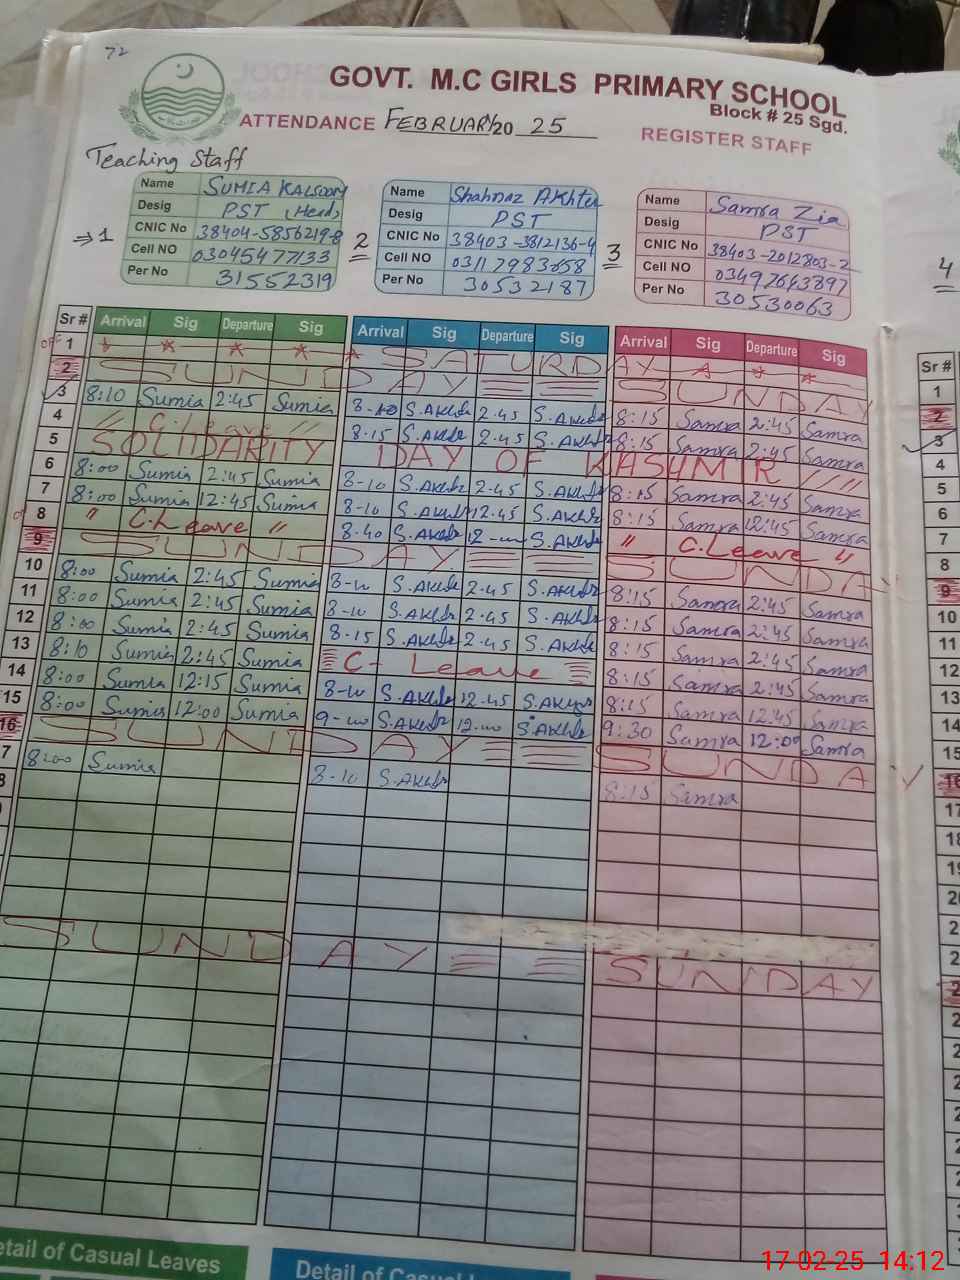 72
GOVT. M.C GIRLS PRIMARY SCHOOL
Block # 25 Sgd.
ATTENDANCE FEBRUARY 20 25
REGISTER STAFF
Teaching Staff
⇒ 1
Name SUMIA KALSOOM
Desig PST (Head)
CNIC No 38404-5856219-8
Cell NO 03045477133
Per No 31552319
2
Name Shahnaz Akhter
Desig PST
CNIC No 38403-3812136-4
Cell NO 03117983058
Per No 30532187
3
Name Samra Zia
Desig PST
CNIC No 38403-2012803-2
Cell NO 03497643897
Per No 30530063
4
Sr # Arrival Sig Departure Sig Arrival Sig Departure Sig Arrival Sig Departure Sig Sr #
1 * * * * * SATURDAY * * *
2 SUNDAY SUNDAY
3 8:10 Sumia 2:45 Sumia 8-10 S.Akhtr 2-45 S.Akhtr 8:15 Samra 2:45 Samra
4 " C. Leave " 8-15 S.Akhtr 2-45 S.Akhtr 8:15 Samra 2:45 Samra
5 SOLIDARITY DAY OF KASHMIR
6 8:00 Sumia 2:45 Sumia 8-10 S.Akhtr 2-45 S.Akhtr 8:15 Samra 2:45 Samra
7 8:00 Sumia 12:45 Sumia 8-10 S.Akhtr 12-45 S.Akhtr 8:15 Samra 12:45 Samra
8 " C.Leave " 8-40 S.Akhtr 12-00 S.Akhtr " C.Leave "
9 SUNDAY SUNDAY
10 8:00 Sumia 2:45 Sumia 8-10 S.Akhtr 2-45 S.Akhtr 8:15 Samra 2:45 Samra
11 8:00 Sumia 2:45 Sumia 8-10 S.Akhtr 2-45 S.Akhtr 8:15 Samra 2:45 Samra
12 8:00 Sumia 2:45 Sumia 8-15 S.Akhtr 2-45 S.Akhtr 8:15 Samra 2:45 Samra
13 8:10 Sumia 2:45 Sumia C- Leave 8:15 Samra 2:45 Samra
14 8:00 Sumia 12:15 Sumia 8-10 S.Akhtr 12-45 S.Akhtr 8:15 Samra 12:45 Samra
15 8:00 Sumia 12:00 Sumia 9-00 S.Akhtr 12-00 S.Akhtr 9:30 Samra 12:00 Samra
16 SUNDAY SUNDAY
7 8:00 Sumia 8-10 S.Akhtr 8:15 Samra
8
SUNDAY SUNDAY
1
2
3
4
5
6
7
8
9
10
11
12
13
14
15
16
17
Detail of Casual Leaves
Detail of Casual
17-02-25 14:12